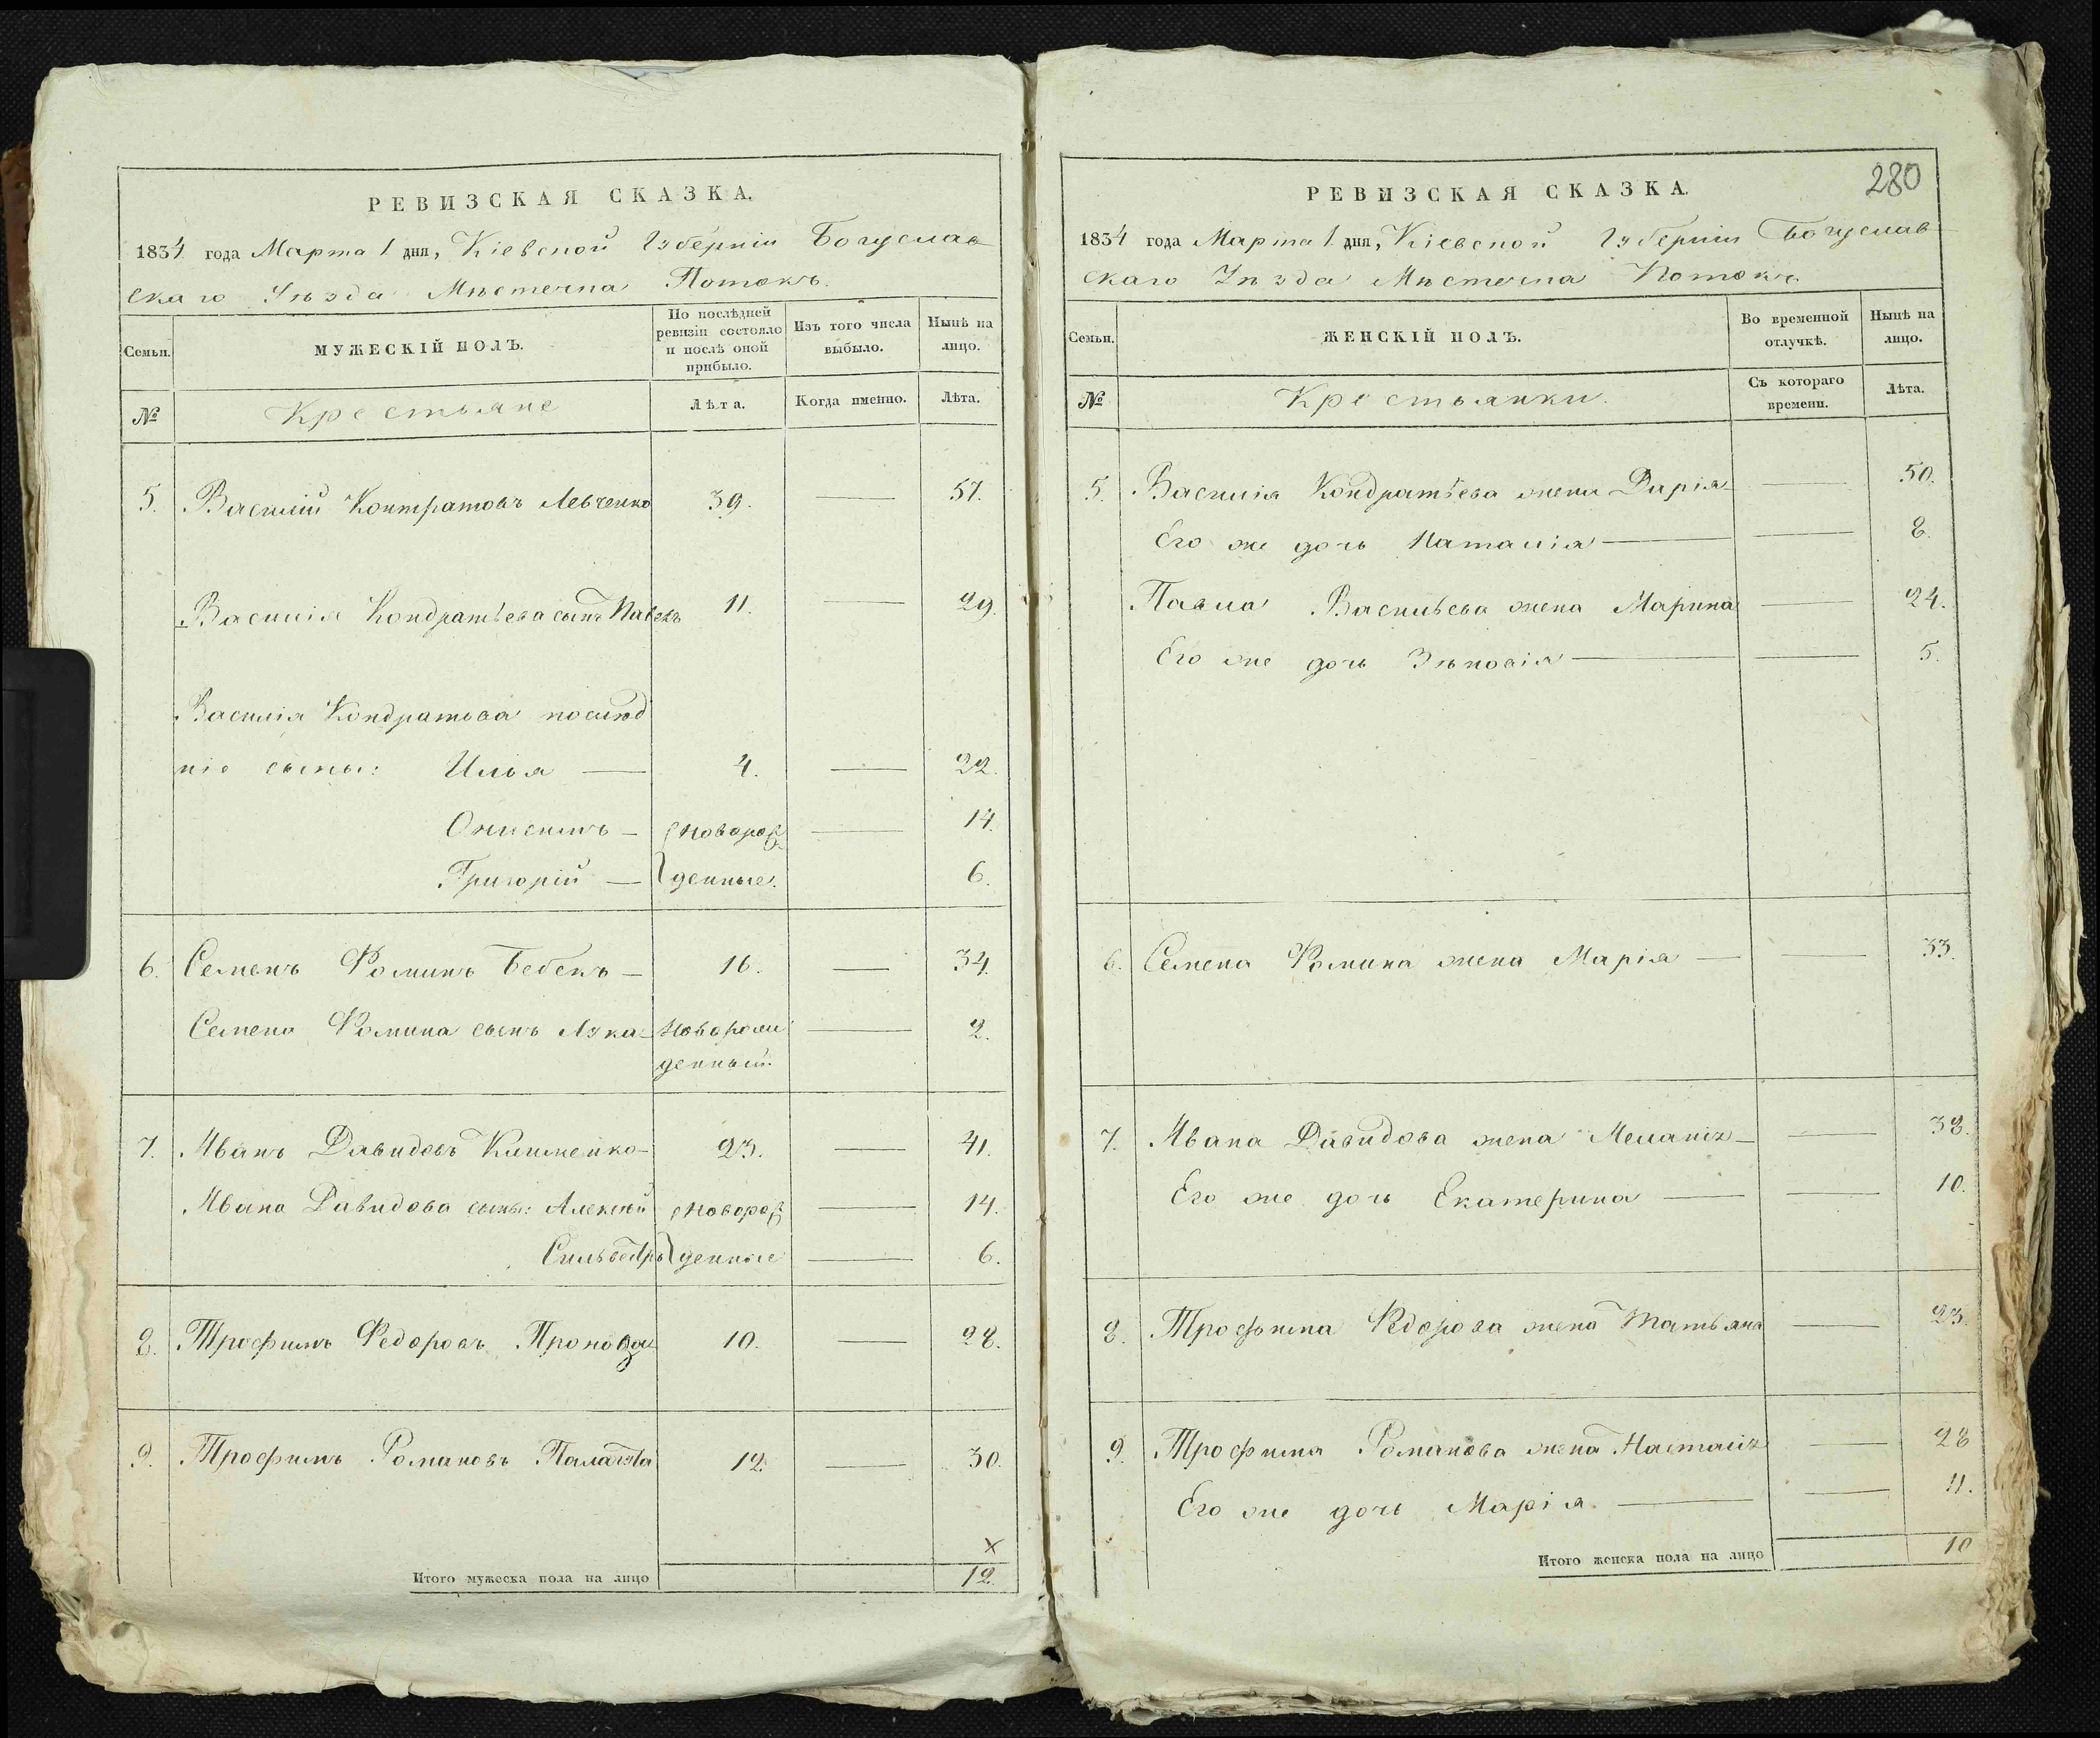 РЕВИЗСКАЯ СКАЗКА.
1834 года Марта 1 дня, Кіевской Губерніи Богуслав
скаго Уѣзда Мѣстечка Потокъ.
Семьи.
МУЖЕСКІЙ ПОЛЪ.
По послѣдней ревизіи состояло и послѣ оной прибыло.
Изъ того числа выбыло.
Нынѣ на лицо.
№ Крестьяне Лѣта. Когда именно. Лѣта.
5. Василій Контратовъ Левченко 39. — 57.
Василія Кондратьева сынъ Павелъ 11. — 29.
Василія Кондратьва послѣд
ніе сыны: Илья — 4. — 22.
Онисимъ — новорож — 14.
Григорій — денные. — 6.
6. Семенъ Фоминъ Бебекъ — 16. — 34.
Семена Фомина сынъ Лука — Новорож — 2.
денный.
7. Иванъ Давидовъ Клименко — 23. — 41.
Ивана Давидова сыны: Алексѣй новорож — 14.
Сильвестръ денные — 6.
8. Трофимъ Федоровъ 10. — 28.
9. Трофимъ Романовъ 12. — 30.
х
Итого мужеска пола на лицо 12.
280
РЕВИЗСКАЯ СКАЗКА.
1834 года Марта 1 дня, Кіевской Губерніи Богуслав
скаго Уѣзда Мѣстечка Потокъ
Семьи.
ЖЕНСКІЙ ПОЛЪ.
Во временной отлучкѣ.
Нынѣ на лицо.
№ Крестьянки. Съ котораго времени. Лѣта.
5. Василія Кондратьева жена Дарія — — 50.
Его же дочь Наталія — — 8.
Павла Васильева жена Марина — 24.
Его же дочь Зѣновія — — 5.
6. Семена Фомина жена Марія — — 33.
7. Ивана Давидова жена Меланія — — 38.
Его же дочь Екатерина — — 10.
8. Трофима Федорова жена Татьяна — 23.
9. Трофима Романова жена Настасія — 28
Его же дочь Марія — — 11.
Итого женска пола на лицо 10